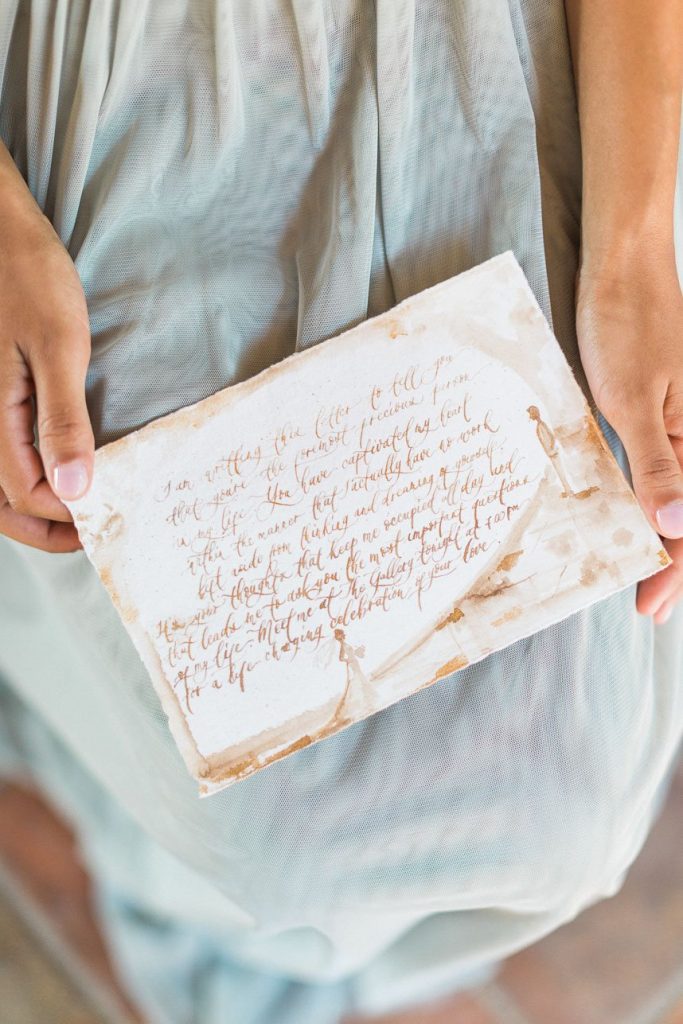 I am writing this letter to tell you
that you're the foremost precious person
in my life. You have captivated my heart
within the manner that I actually have no work
left aside from thinking and dreaming of yourself.
It's your thoughts that keep me occupied all day and
that leads me to ask you the most important questions
of my life. Meet me at The Gallery tonight at
for a life-changing celebration of your love.